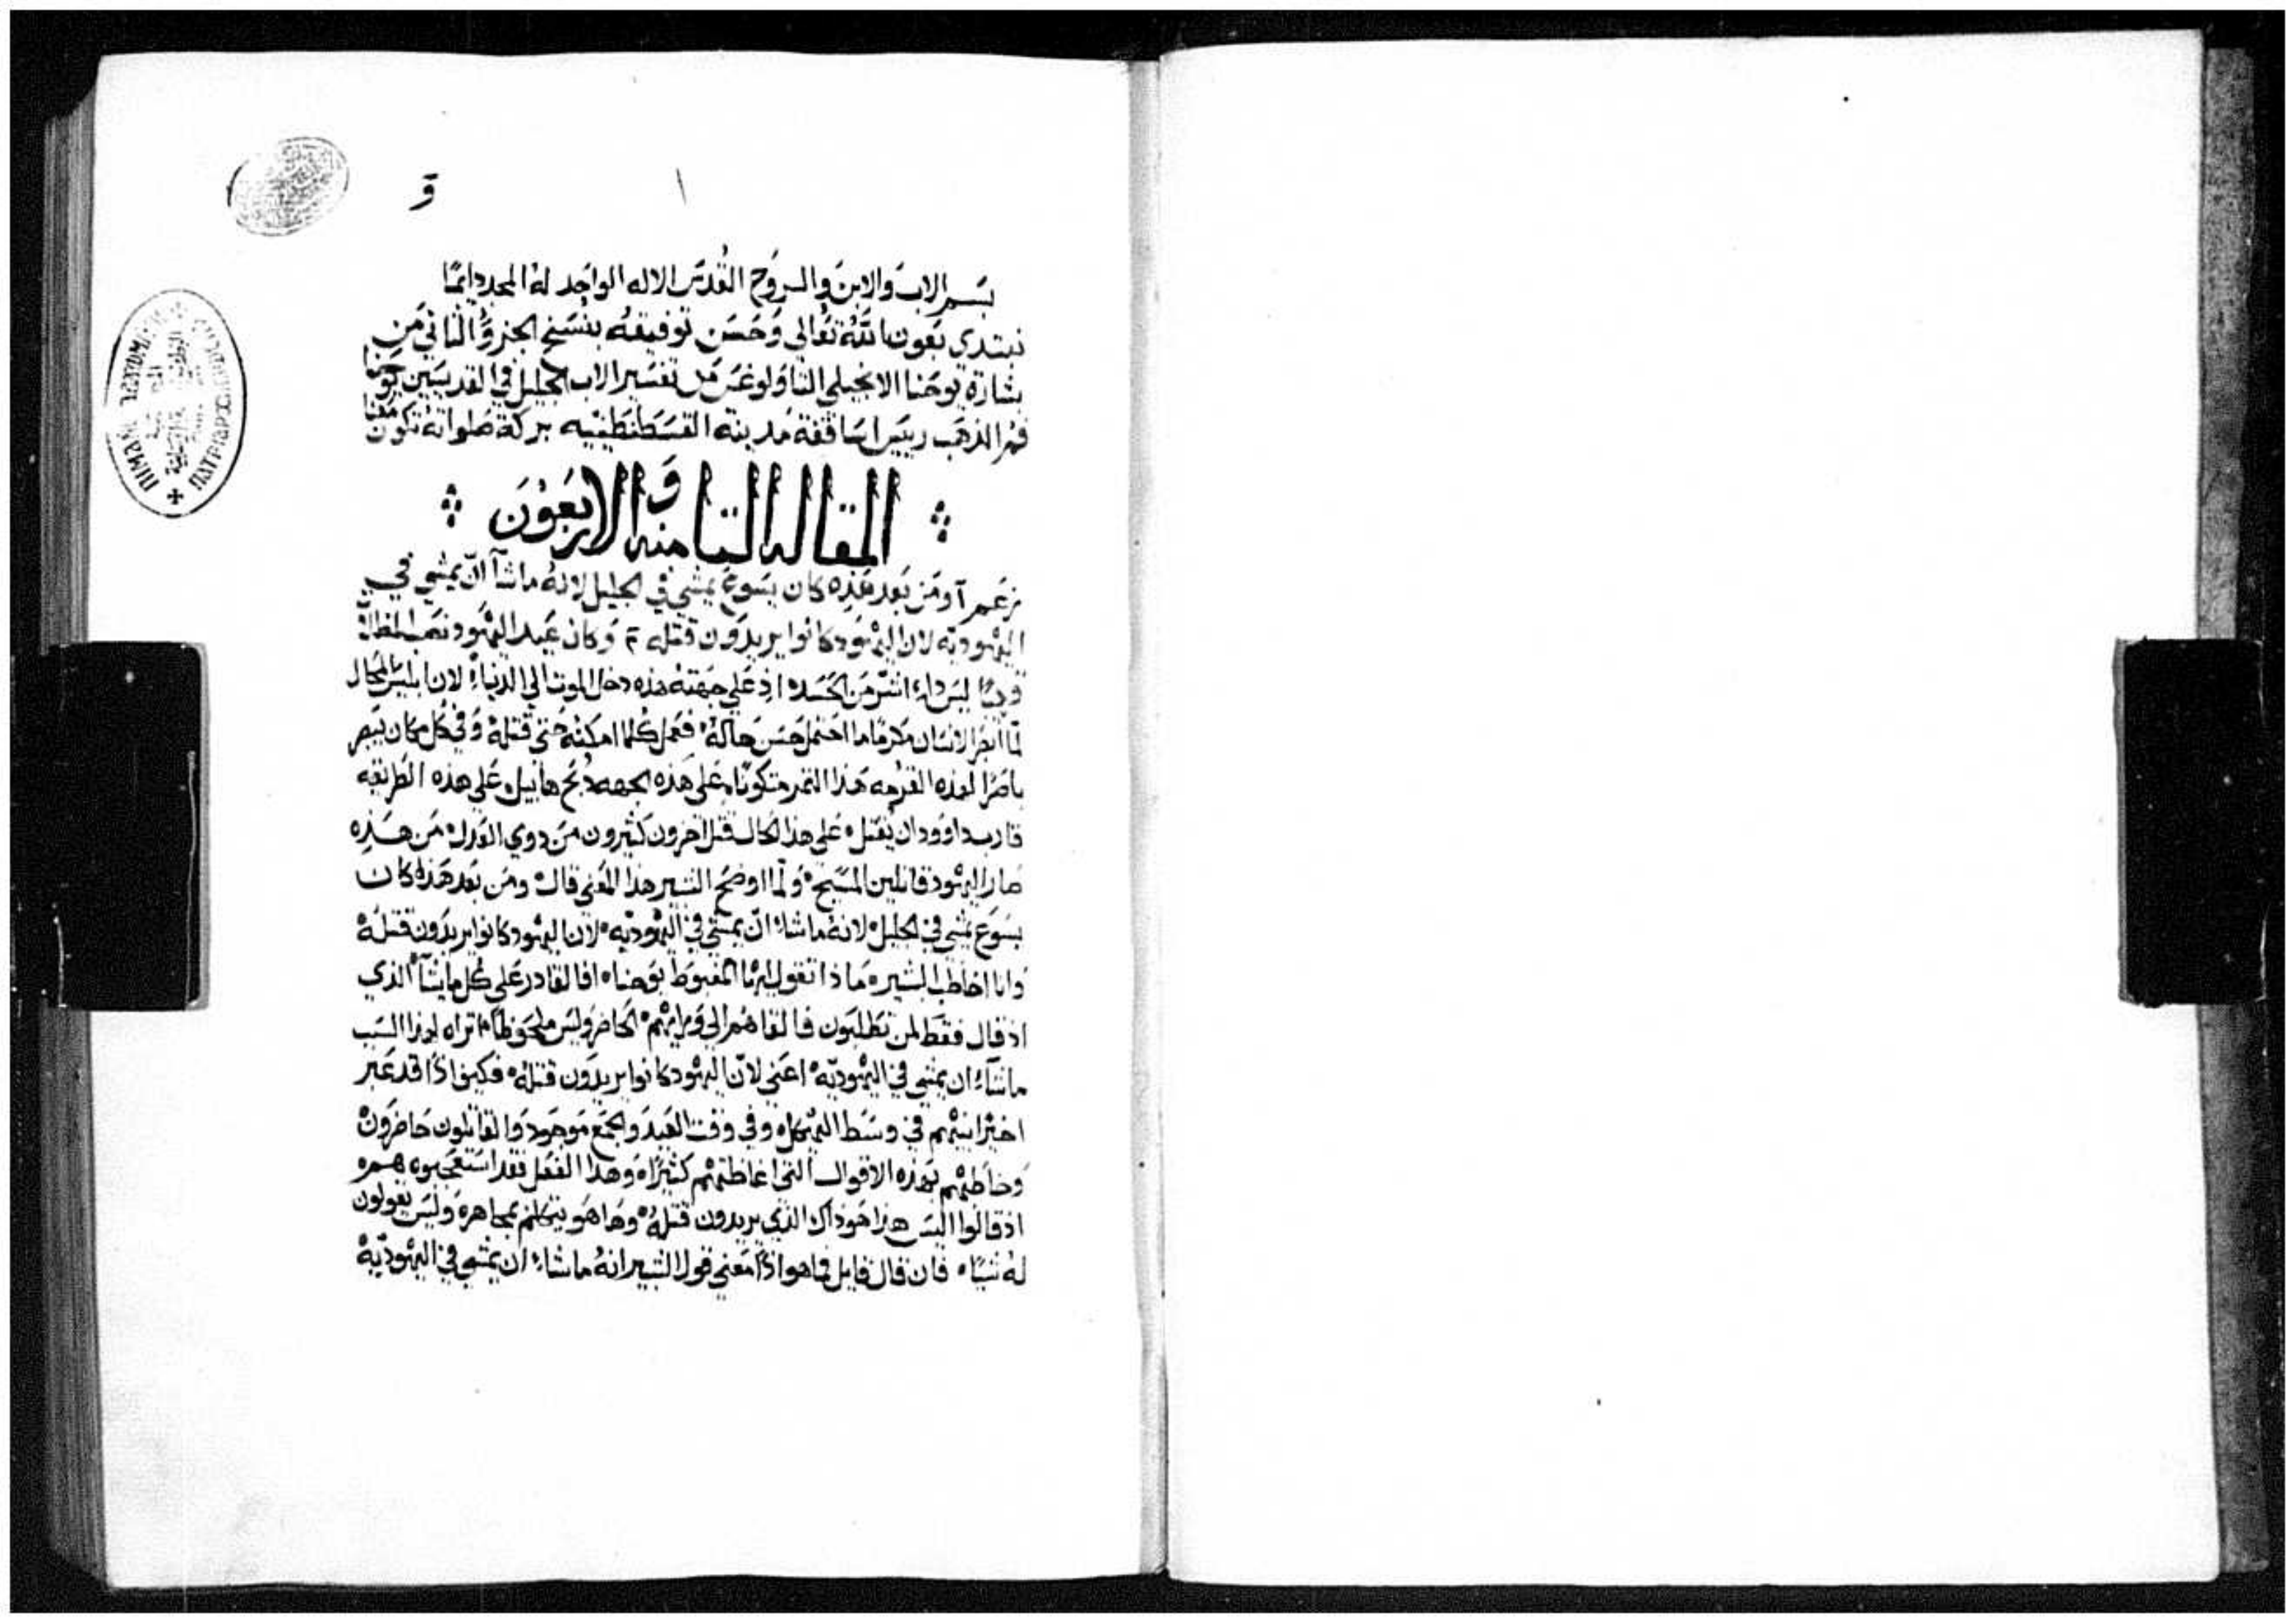 و
١
بسم الاب والابن والروح القدس الاله الواحد له المجد دايمًا
نبتدي بعون الله تعالى وحسن توفيقه بنسخ الجزؤ الثاني من
بشارة يوحنا الانجيلي التاولوغس من تفسير الاب الجليل في القديسين يوحنا
فم الذهب رييس اساقفة مدينة القسطنطينيه بركة صلواته تكون معنا
المقاله الثامنه والاربعون
زعم آ ومن بعد هذه كان يسوع يمشي في الجليل لانه ما شآ ان يمشي في
اليهوديه لان اليهود كانوا يريدون قتله وكان عيد اليهود نصب المظال
قريبًا ليس داء اشر من الحسد اذ على جهته هذه دخل الموت الي الدنيا لان ابليس المحال
لما ابصر الانسان مكرمًا ما احتمل حسن حاله فعمل كلما امكنه حتي قتله وفي كل مكان يبصر
باصرًا لهذه القرمه هذا الثمر متكونًا على هذه الجهه ذبح هابيل على هذه الطريقه
قارب داوود ان يقتل على هذا الحال قتل اخرون كثيرون من دوي العدل من هذه
صار اليهود قاتلين المسيح ولما اوضح البشير هذا المعني قال ومن بعد هذا كان
يسوع يمشي في الجليل لانه ما شاء ان يمشي في اليهوديه لان اليهود كانوا يريدون قتله
وانا اخاطب البشير ما ذا تقول ايها المغبوط يوحنا افا القادر على كل ما يشآ الذي
اذ قال فقط لمن تطلبون فالقاهم الي ورايهم الحاضر وليس ملحوظًا اتراه لهذا السبب
ما شآء ان يمشي في اليهوديه اعني لان اليهود كانوا يريدون قتله فكيف اذًا قد عبر
اخيرًا بينهم في وسط الهيكل وفي وقت العيد والجمع موجود والقاتلون حاضرون
وخاطبهم بهذه الاقوال التي اغاظتهم كثيرًا وهذا الفعل فقد استعجبوه هم
اذ قالوا اليس هذا هو ذاك الذي يريدون قتله وها هو يتكلم بمجاهره وليس يقولون
له شيًا فان قال قايل فما هو اذًا معني قول البشير انه ما شاء ان يمشي في اليهوديه